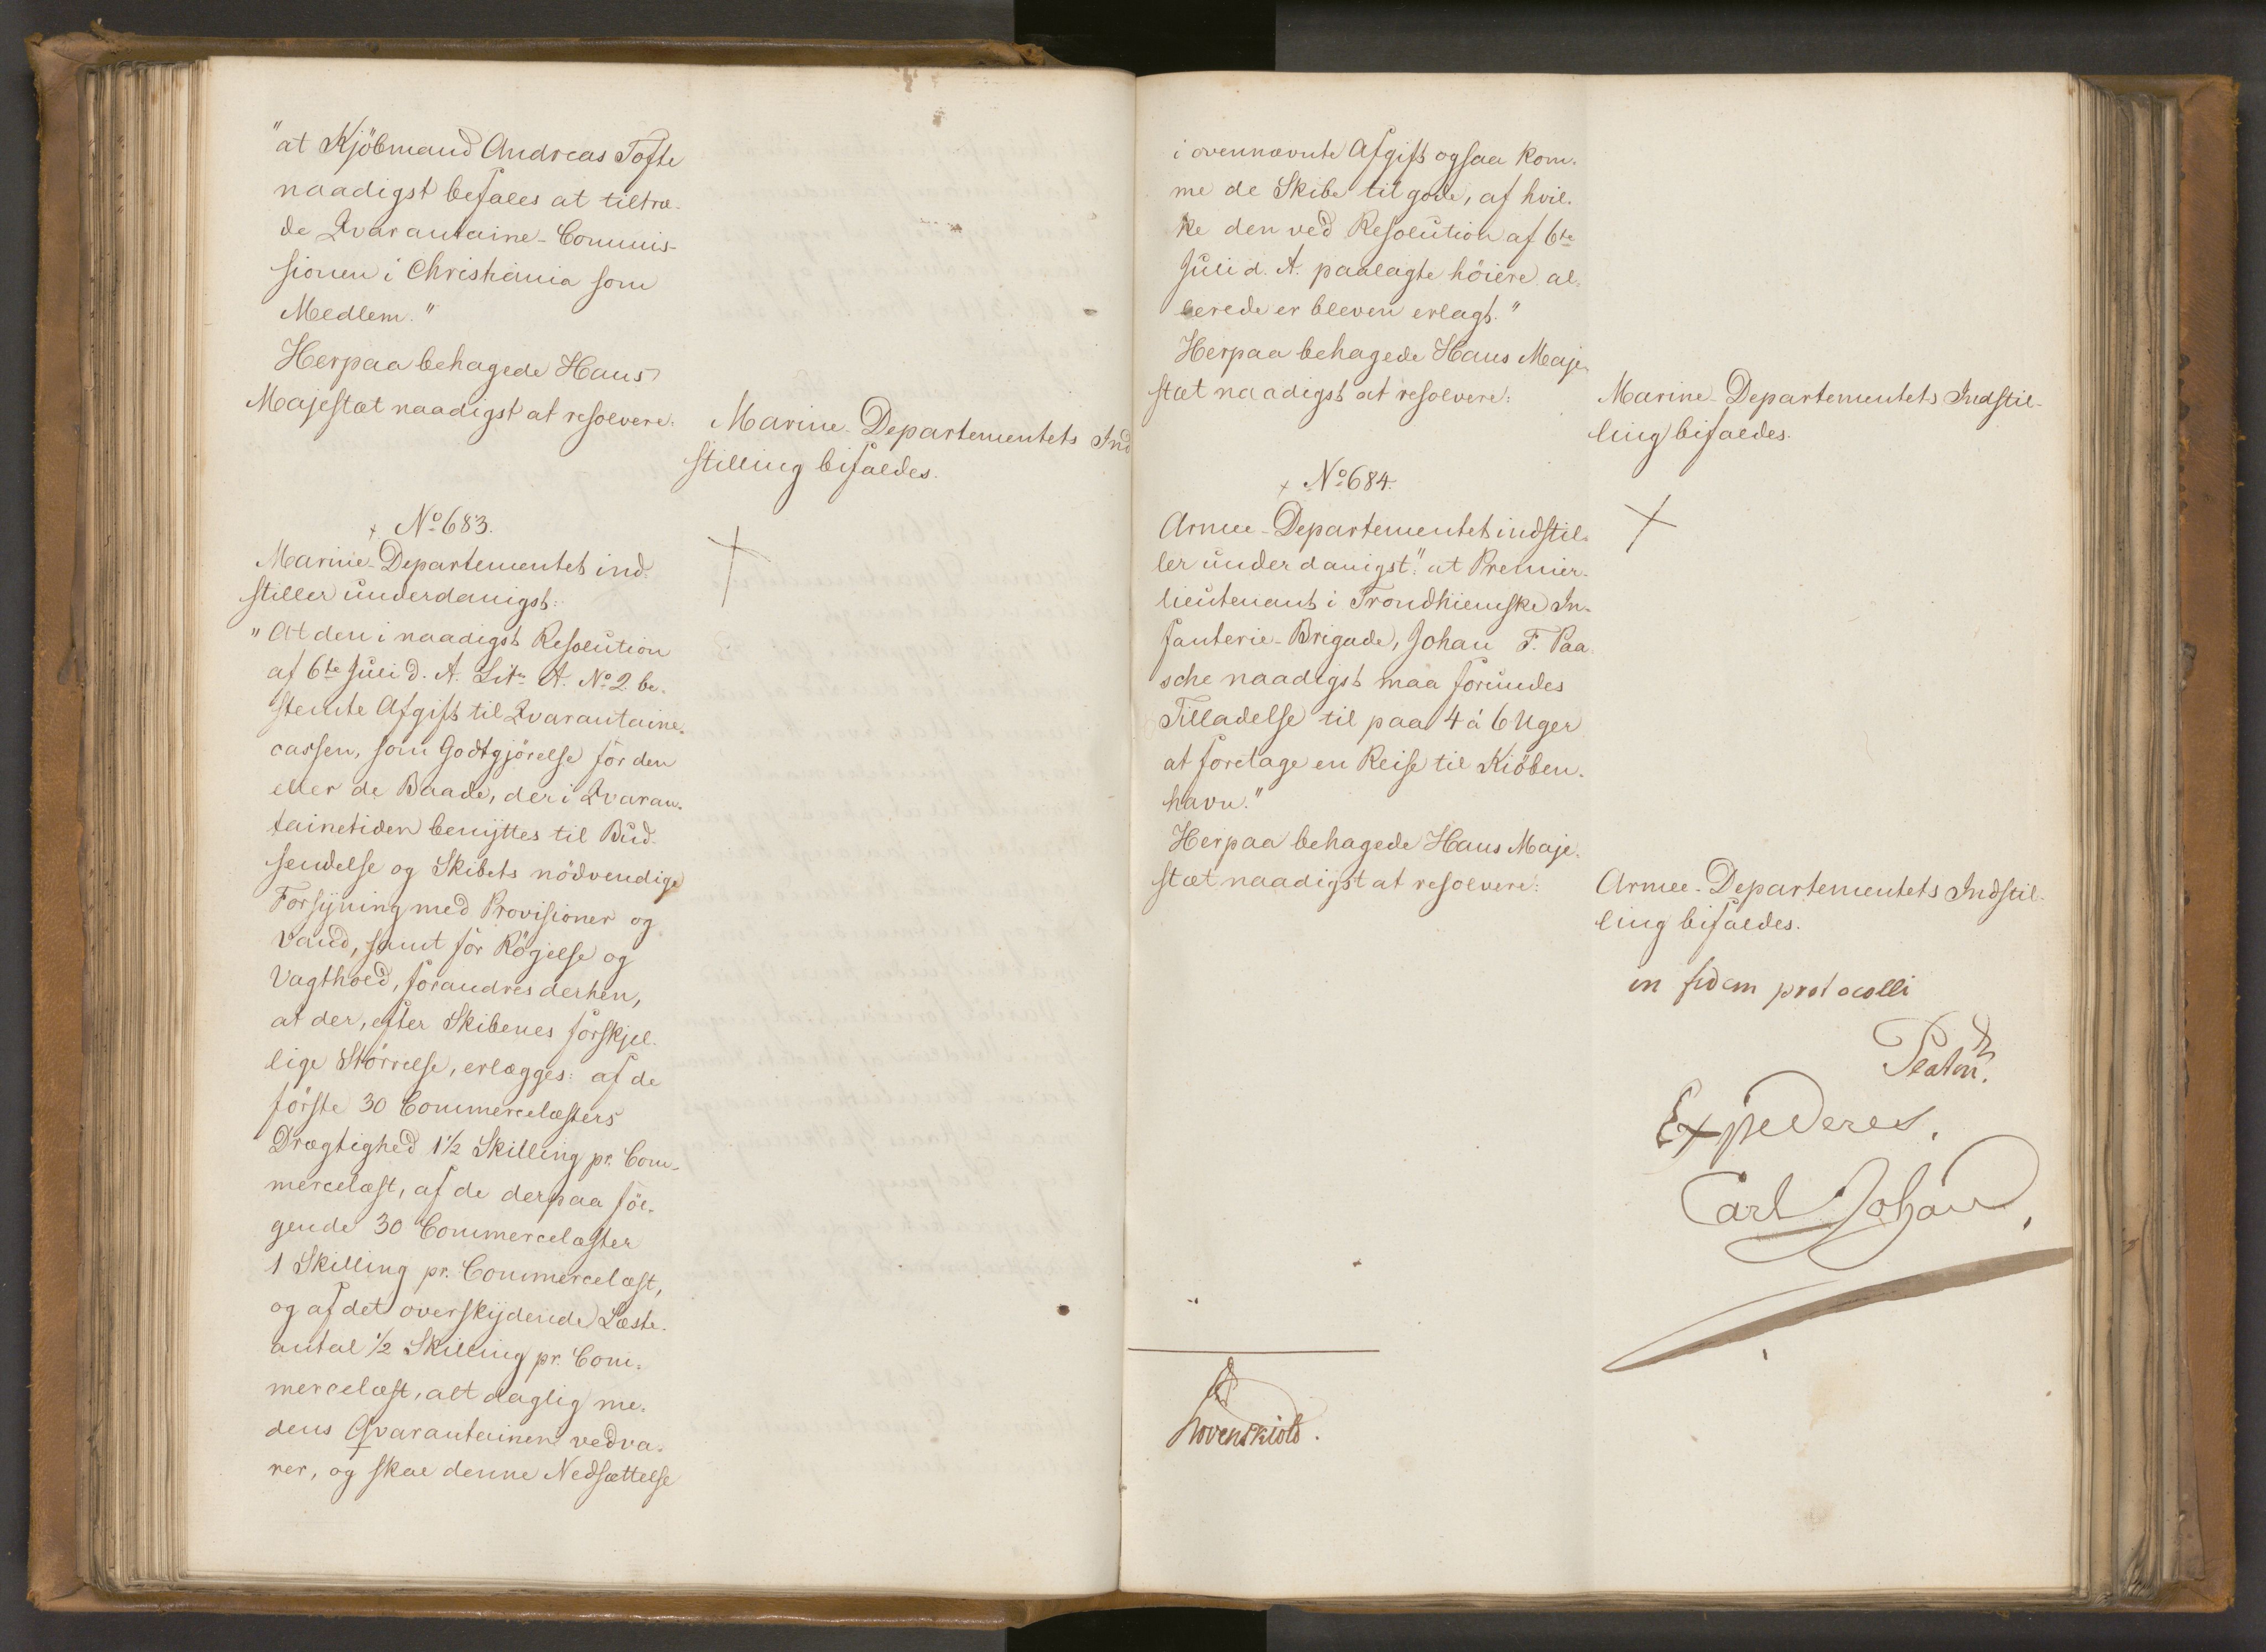 "at Kjöbmand Andreas Tofte
naadigst befales at tiltræ-
de Qvarantaine-Commis-
sionen i Christiania som
Medlem."
Herpaa behagede Hans
Majestæt naadigst at resolvere:
Marine-Departementets Ind
stilling bifaldes.
+ No 683.
Marine-Departementet ind-
stiller underdanigst:
"At den i naadigst Resolution
af 6te Juli d. A. Litr A. No 2 be-
stemte Afgift til Qvarantaine-
cassen, som Godtgjörelse for den
eller de Baade, der i Qvaran-
tainetiden benyttes til Bud-
sendelse og Skibets nödvendige
Forsyning med Provisioner og
Vand, samt for Rögelse og
Vagthold, forandres derhen,
at der, efter Skibenes forskjel-
lige Störrelse, erlægges: af de
förste 30 Commercelæsters
Drægtighed 1½ Skilling pr. Com-
mercelæst, af de derpaa föl-
gende 30 Commercelæster
1 Skilling pr. Commercelæst,
og af det overskydende Læste-
antal ½ Skilling pr. Com-
mercelæst, alt daglig me-
dens Qvarantainen vedva-
rer, og skal denne Nedsættelse
i ovennævnte Afgift ogsaa kom-
me de Skibe tilgode, af hvil-
ke den ved Resolution af 6te
Juli d. A. paalagte höiere al-
lerede er bleven erlagt."
Herpaa behagede Hans Maje-
stæt naadigst at resolvere:
Marine-Departementets Indstil-
ling bifaldes.
+ No 684.
Armee-Departementet indstil-
ler underdanigst: "at Premier-
lieutenant i Trondhiemske In-
fanterie-Brigade, Johan F. Paa-
sche naadigst maa forundes
Tilladelse til paa 4 à 6 Uger
at foretage en Reise til Kiöben-
havn."
Herpaa behagede Hans Maje-
stæt naadigst at resolvere:
Armee-Departementets Indstil-
ling bifaldes.
in fidem protocolli
Expederes.
Carl Johan
Løvenskiold.